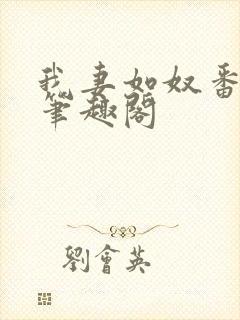 我妻如奴番
笔趣阁
劉會英